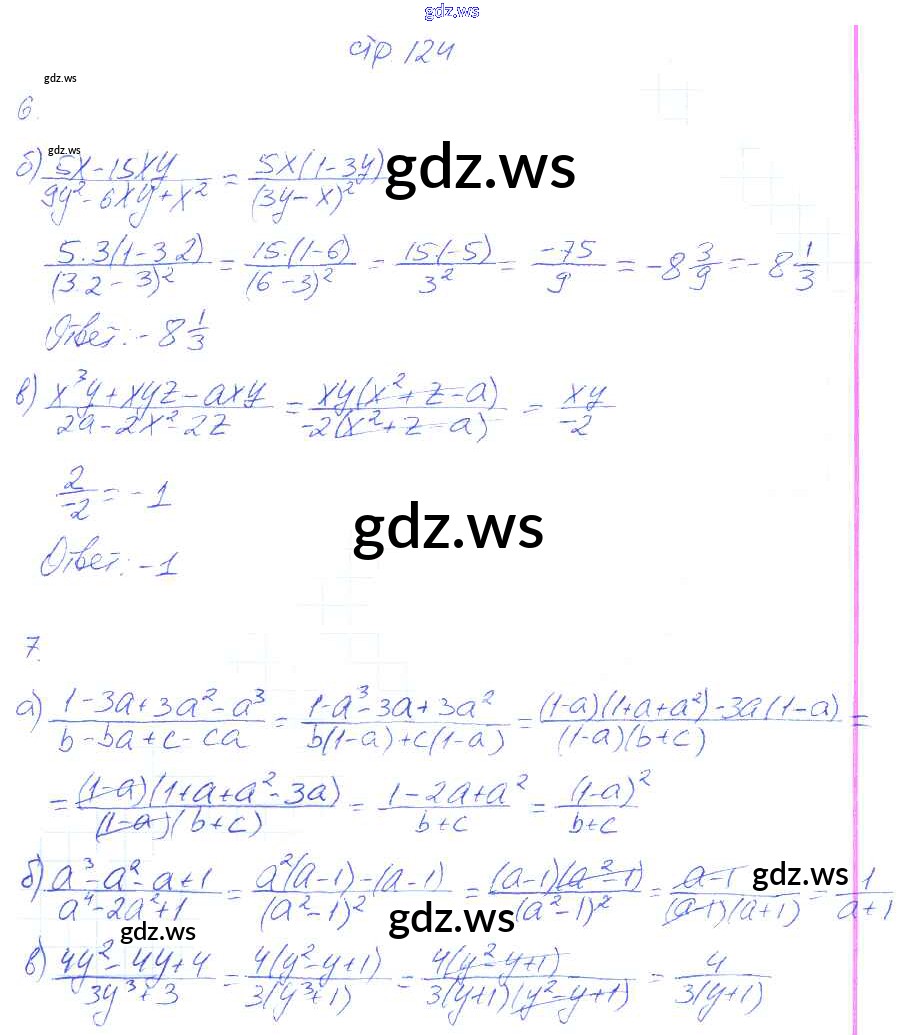 gdz.ws
стр 124
gdz.ws
6.
gdz.ws
б) (5x-15xy)/(9y²-6xy+x²) = (5x(1-3y))/((3y-x)²)
gdz.ws
(5·3(1-3·2))/((3·2-3)²) = (15·(1-6))/((6-3)²) = (15·(-5))/(3²) = (-75)/9 = -8 3/9 = -8 1/3
Ответ: -8 1/3
в) (x³y+xyz-axy)/(2a-2x²-2z) = (xy(x²+z-a))/(-2(x²+z-a)) = xy/(-2)
2/(-2) = -1
gdz.ws
Ответ: -1
7.
а) (1-3a+3a²-a³)/(b-ba+c-ca) = (1-a³-3a+3a²)/(b(1-a)+c(1-a)) = ((1-a)(1+a+a²)-3a(1-a))/((1-a)(b+c)) =
= ((1-a)(1+a+a²-3a))/((1-a)(b+c)) = (1-2a+a²)/(b+c) = (1-a)²/(b+c)
б) (a³-a²-a+1)/(a⁴-2a²+1) = (a²(a-1)-(a-1))/((a²-1)²) = ((a-1)(a²-1))/((a²-1)²) = (a-1)/((a-1)(a+1)) = 1/(a+1)
gdz.ws
gdz.ws
gdz.ws
в) (4y²-4y+4)/(3y³+3) = (4(y²-y+1))/(3(y³+1)) = (4(y²-y+1))/(3(y+1)(y²-y+1)) = 4/(3(y+1))